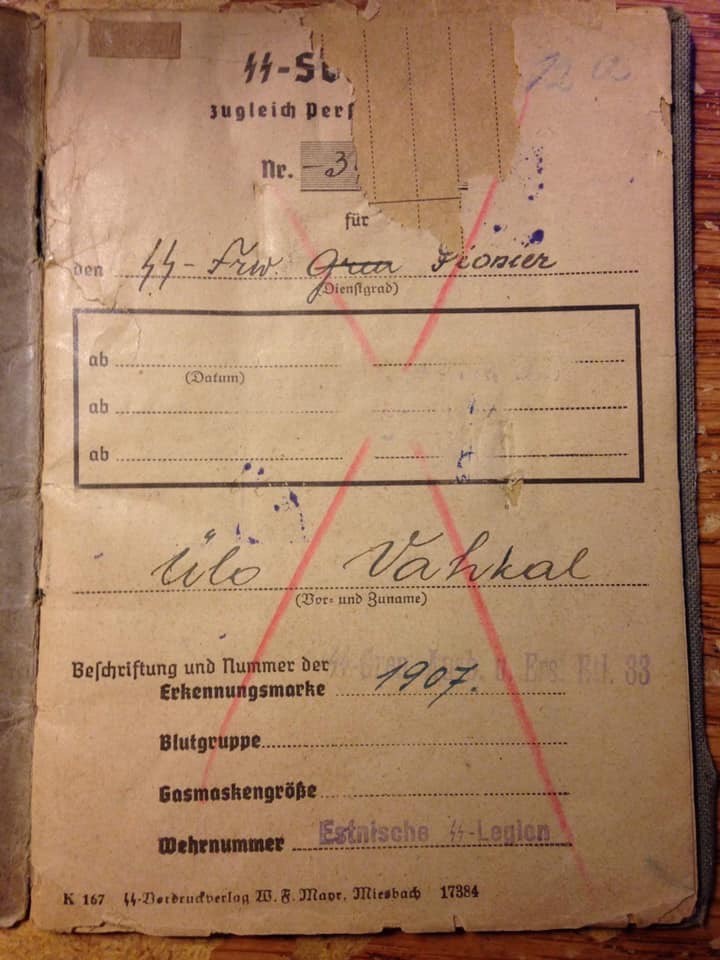 ᛋᛋ-So
zugleich Perſ
Nr. -3
12 a
für
den ᛋᛋ-Frw. Gren Pionier
(Dienſtgrad)
ab
(Datum)
ab
ab
Ülo Vahkal
(Vor- und Zuname)
Beſchriftung und Nummer der
ᛋᛋ-Gren. Ausb. u. Ers. Btl. 33
Erkennungsmarke 1907.
Blutgruppe
Gasmaskengröße
Wehrnummer Estnische ᛋᛋ-Legion
K 167 ᛋᛋ-Vordruckverlag W. F. Mayr, Miesbach 17384